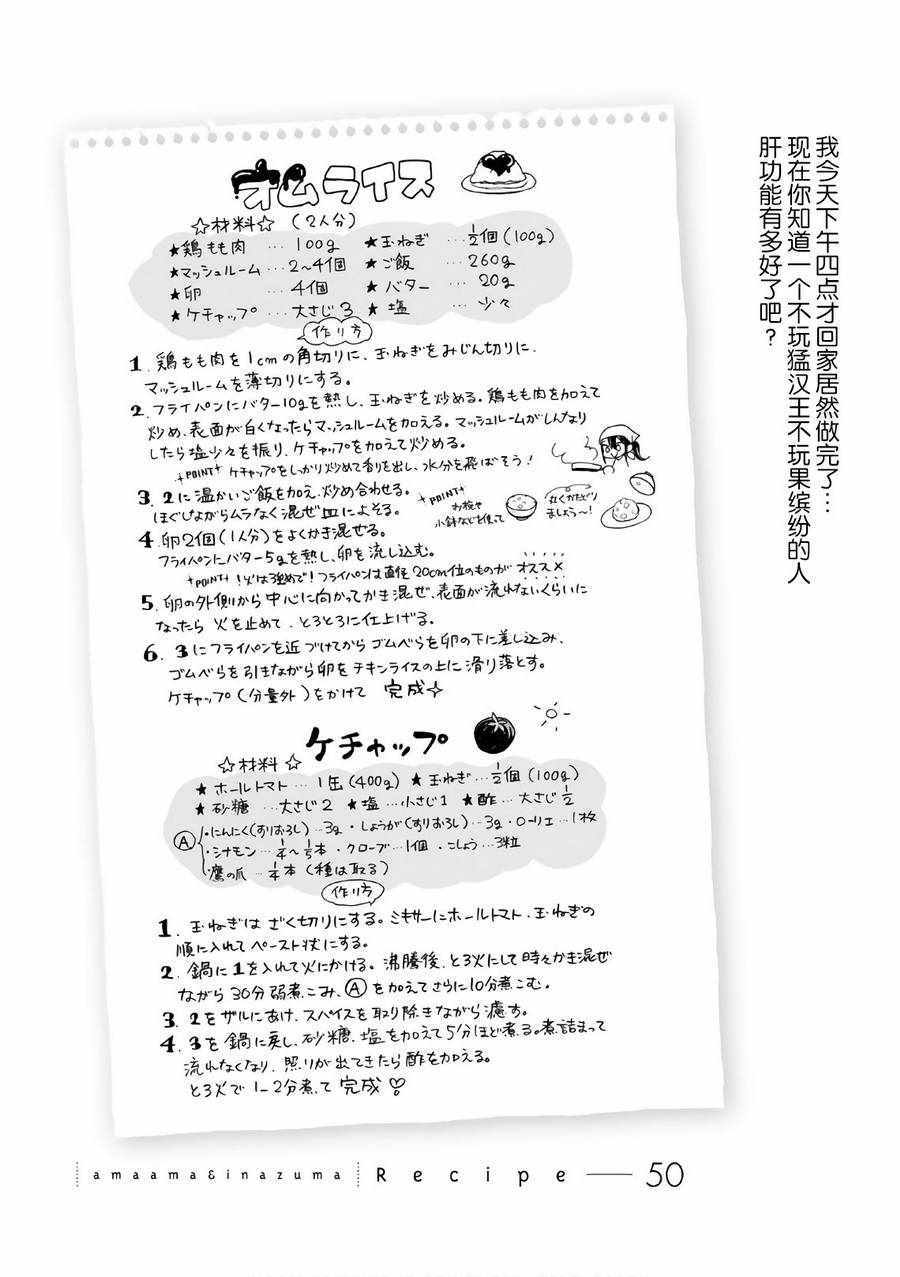 我今天下午四点才回家居然做完了…
现在你知道一个不玩猛汉王不玩果缤纷的人
肝功能有多好了吧？
オムライス
☆材料☆ （2人分）
★鶏もも肉 … 100g ★玉ねぎ … 1/2個(100g)
★マッシュルーム … 2〜4個 ★ご飯 … 260g
★卵 … 4個 ★バター … 20g
★ケチャップ … 大さじ3 ★塩 … 少々
作り方
1. 鶏もも肉を1cmの角切りに、玉ねぎをみじん切りに、
マッシュルームを薄切りにする。
2. フライパンにバター10gを熱し、玉ねぎを炒める。鶏もも肉を加えて
炒め、表面が白くなったらマッシュルームを加える。マッシュルームがしんなり
したら塩少々を振り、ケチャップを加えて炒める。
POINT ケチャップをしっかり炒めて香りを出し、水分を飛ばそう！
3. 2に温かいご飯を加え、炒め合わせる。
ほぐしながらムラなく混ぜ皿によそる。
POINT
お椀や
小鉢などを使って
丸くかたどり
ましょう〜！
4. 卵2個（1人分）をよくかき混ぜる。
フライパンにバター5gを熱し、卵を流し込む。
POINT！火は強めで！フライパンは直径20cm位のものがオススメ
5. 卵の外側から中心に向かってかき混ぜ、表面が流れないくらいに
なったら 火を止めて、とろとろに仕上げる。
6. 3にフライパンを近づけてから ゴムべらを卵の下に差し込み、
ゴムべらを引きながら卵をチキンライスの上に滑り落とす。
ケチャップ（分量外）をかけて 完成☆
ケチャップ
☆材料☆
★ホールトマト … 1缶(400g) ★玉ねぎ … 1/2個(100g)
★砂糖 … 大さじ2 ★塩 … 小さじ1 ★酢 … 大さじ1/2
Ⓐ ・にんにく(すりおろし) … 3g ・しょうが(すりおろし) … 3g ・ローリエ … 1枚
・シナモン … 1/4〜1/5本 ・クローブ … 1個 ・こしょう … 3粒
・鷹の爪 … 1/4本（種は取る）
作り方
1. 玉ねぎは ざく切りにする。ミキサーにホールトマト、玉ねぎの
順に入れて ペースト状にする。
2. 鍋に1を入れて火にかける。沸騰後、とろ火にして時々かき混ぜ
ながら30分弱煮こみ、Ⓐを加えてさらに10分煮こむ。
3. 2をザルにあけ、スパイスを取り除きながら濾す。
4. 3を鍋に戻し、砂糖、塩を加えて5分ほど煮る。煮詰まって
流れなくなり、照りが出てきたら酢を加える。
とろ火で1〜2分煮て 完成♡
amaama&inazuma Recipe — 50